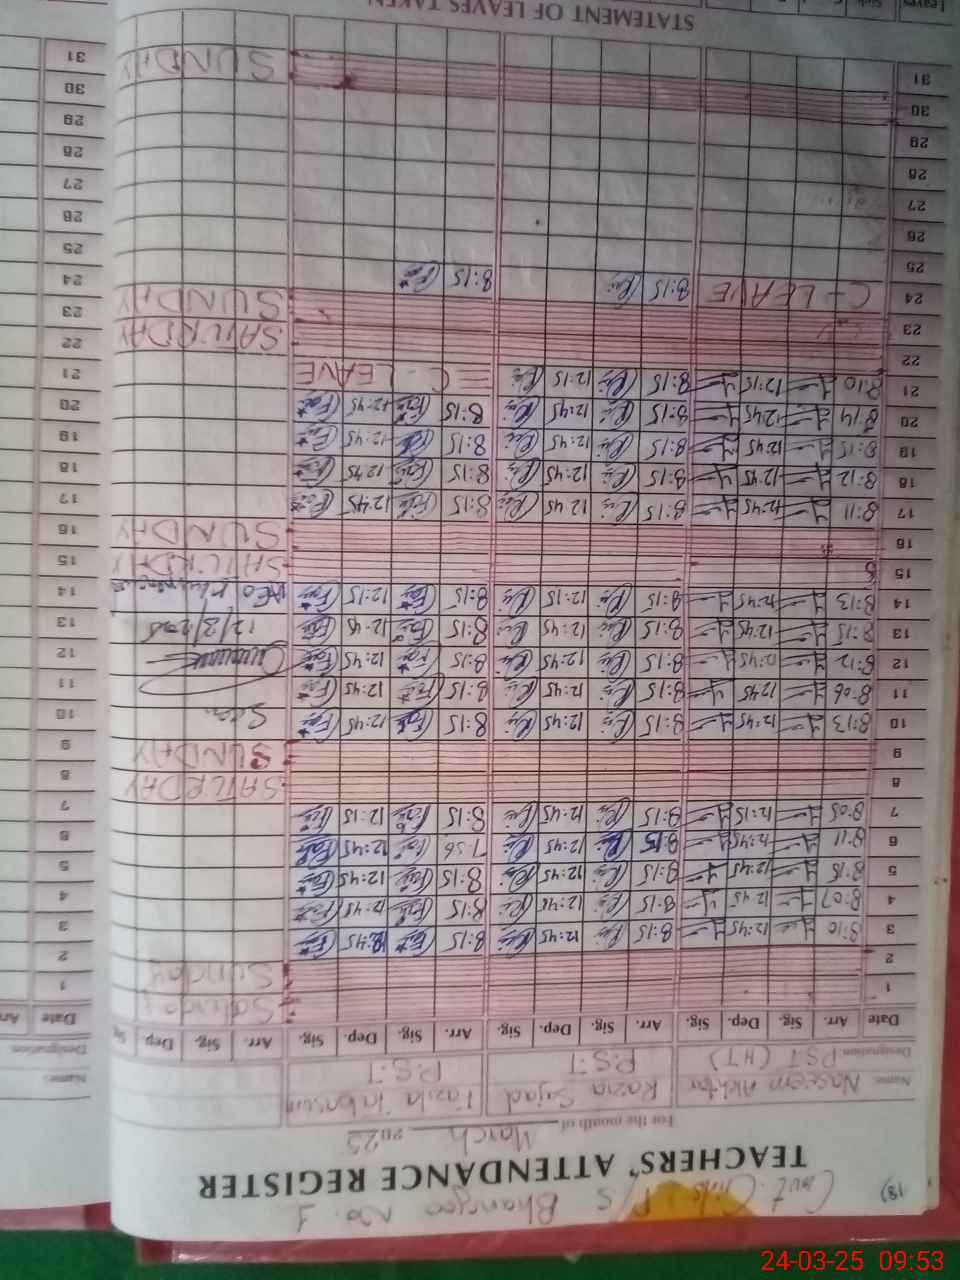 18)
Govt. Girls P/S Bhangoo No. 1
TEACHERS' ATTENDANCE REGISTER
For the month of March 2025
Name: Naseem Akhtar Razia Sajad Fazila Tabasum
Designation: PST (HT) P.S.T P.S.T
Date Arr. Sig. Dep. Sig. Arr. Sig. Dep. Sig. Arr. Sig. Dep. Sig. Arr. Sig. Dep. Sig
1 Saturday
2 Sunday
3 8:10 12:45 8:15 12:45 8:15 12:45
4 8:07 12:45 8:15 12:45 8:15 12:45
5 8:15 12:45 8:15 12:45 8:15 12:45
6 8:11 12:45 8:15 12:45 7:56 12:45
7 8:05 12:15 8:15 12:45 8:15 12:15
8 SATURDAY
9 SUNDAY
10 8:13 12:45 8:15 12:45 8:15 12:45 Seen
11 8:06 12:45 8:15 12:45 8:15 12:45
12 8:12 12:45 8:15 12:45 8:15 12:45
13 8:15 12:45 8:15 12:45 8:15 12:45 12/3/2025
14 8:13 12:45 8:15 12:15 8:15 12:15 AEO
15 SATURDAY
16 SUNDAY
17 8:11 12:45 8:15 12:45 8:15 12:45
18 8:12 12:45 8:15 12:45 8:15 12:45
19 8:15 12:45 8:15 12:45 8:15 12:45
20 8:14 12:45 8:15 12:45 8:15 12:45
21 8:10 12:15 8:15 12:15 C-LEAVE
22 SATURDAY
23 SUNDAY
24 C-LEAVE 8:15 8:15
25
26
27
28
29
30
31 SUNDAY
STATEMENT OF LEAVES TAKEN
Leaves
Name:
Designation:
Date Arr
1
2
3
4
5
6
7
8
9
10
11
12
13
14
15
16
17
18
19
20
21
22
23
24
25
26
27
28
29
30
31
24-03-25 09:53